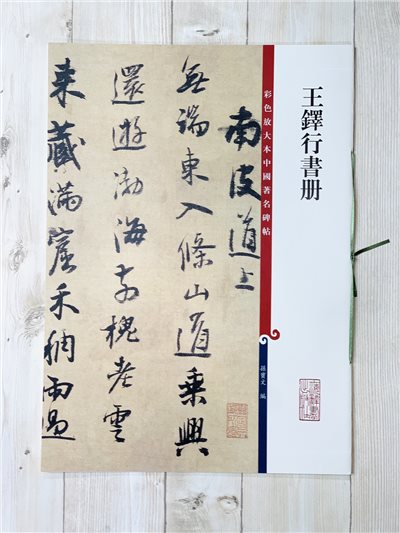 王鐸行書册
彩色放大本中國著名碑帖
孫寶文 編
南皮道上
無端東入條山道乗興
還遊渤海
老雲
來藏滿窟禾